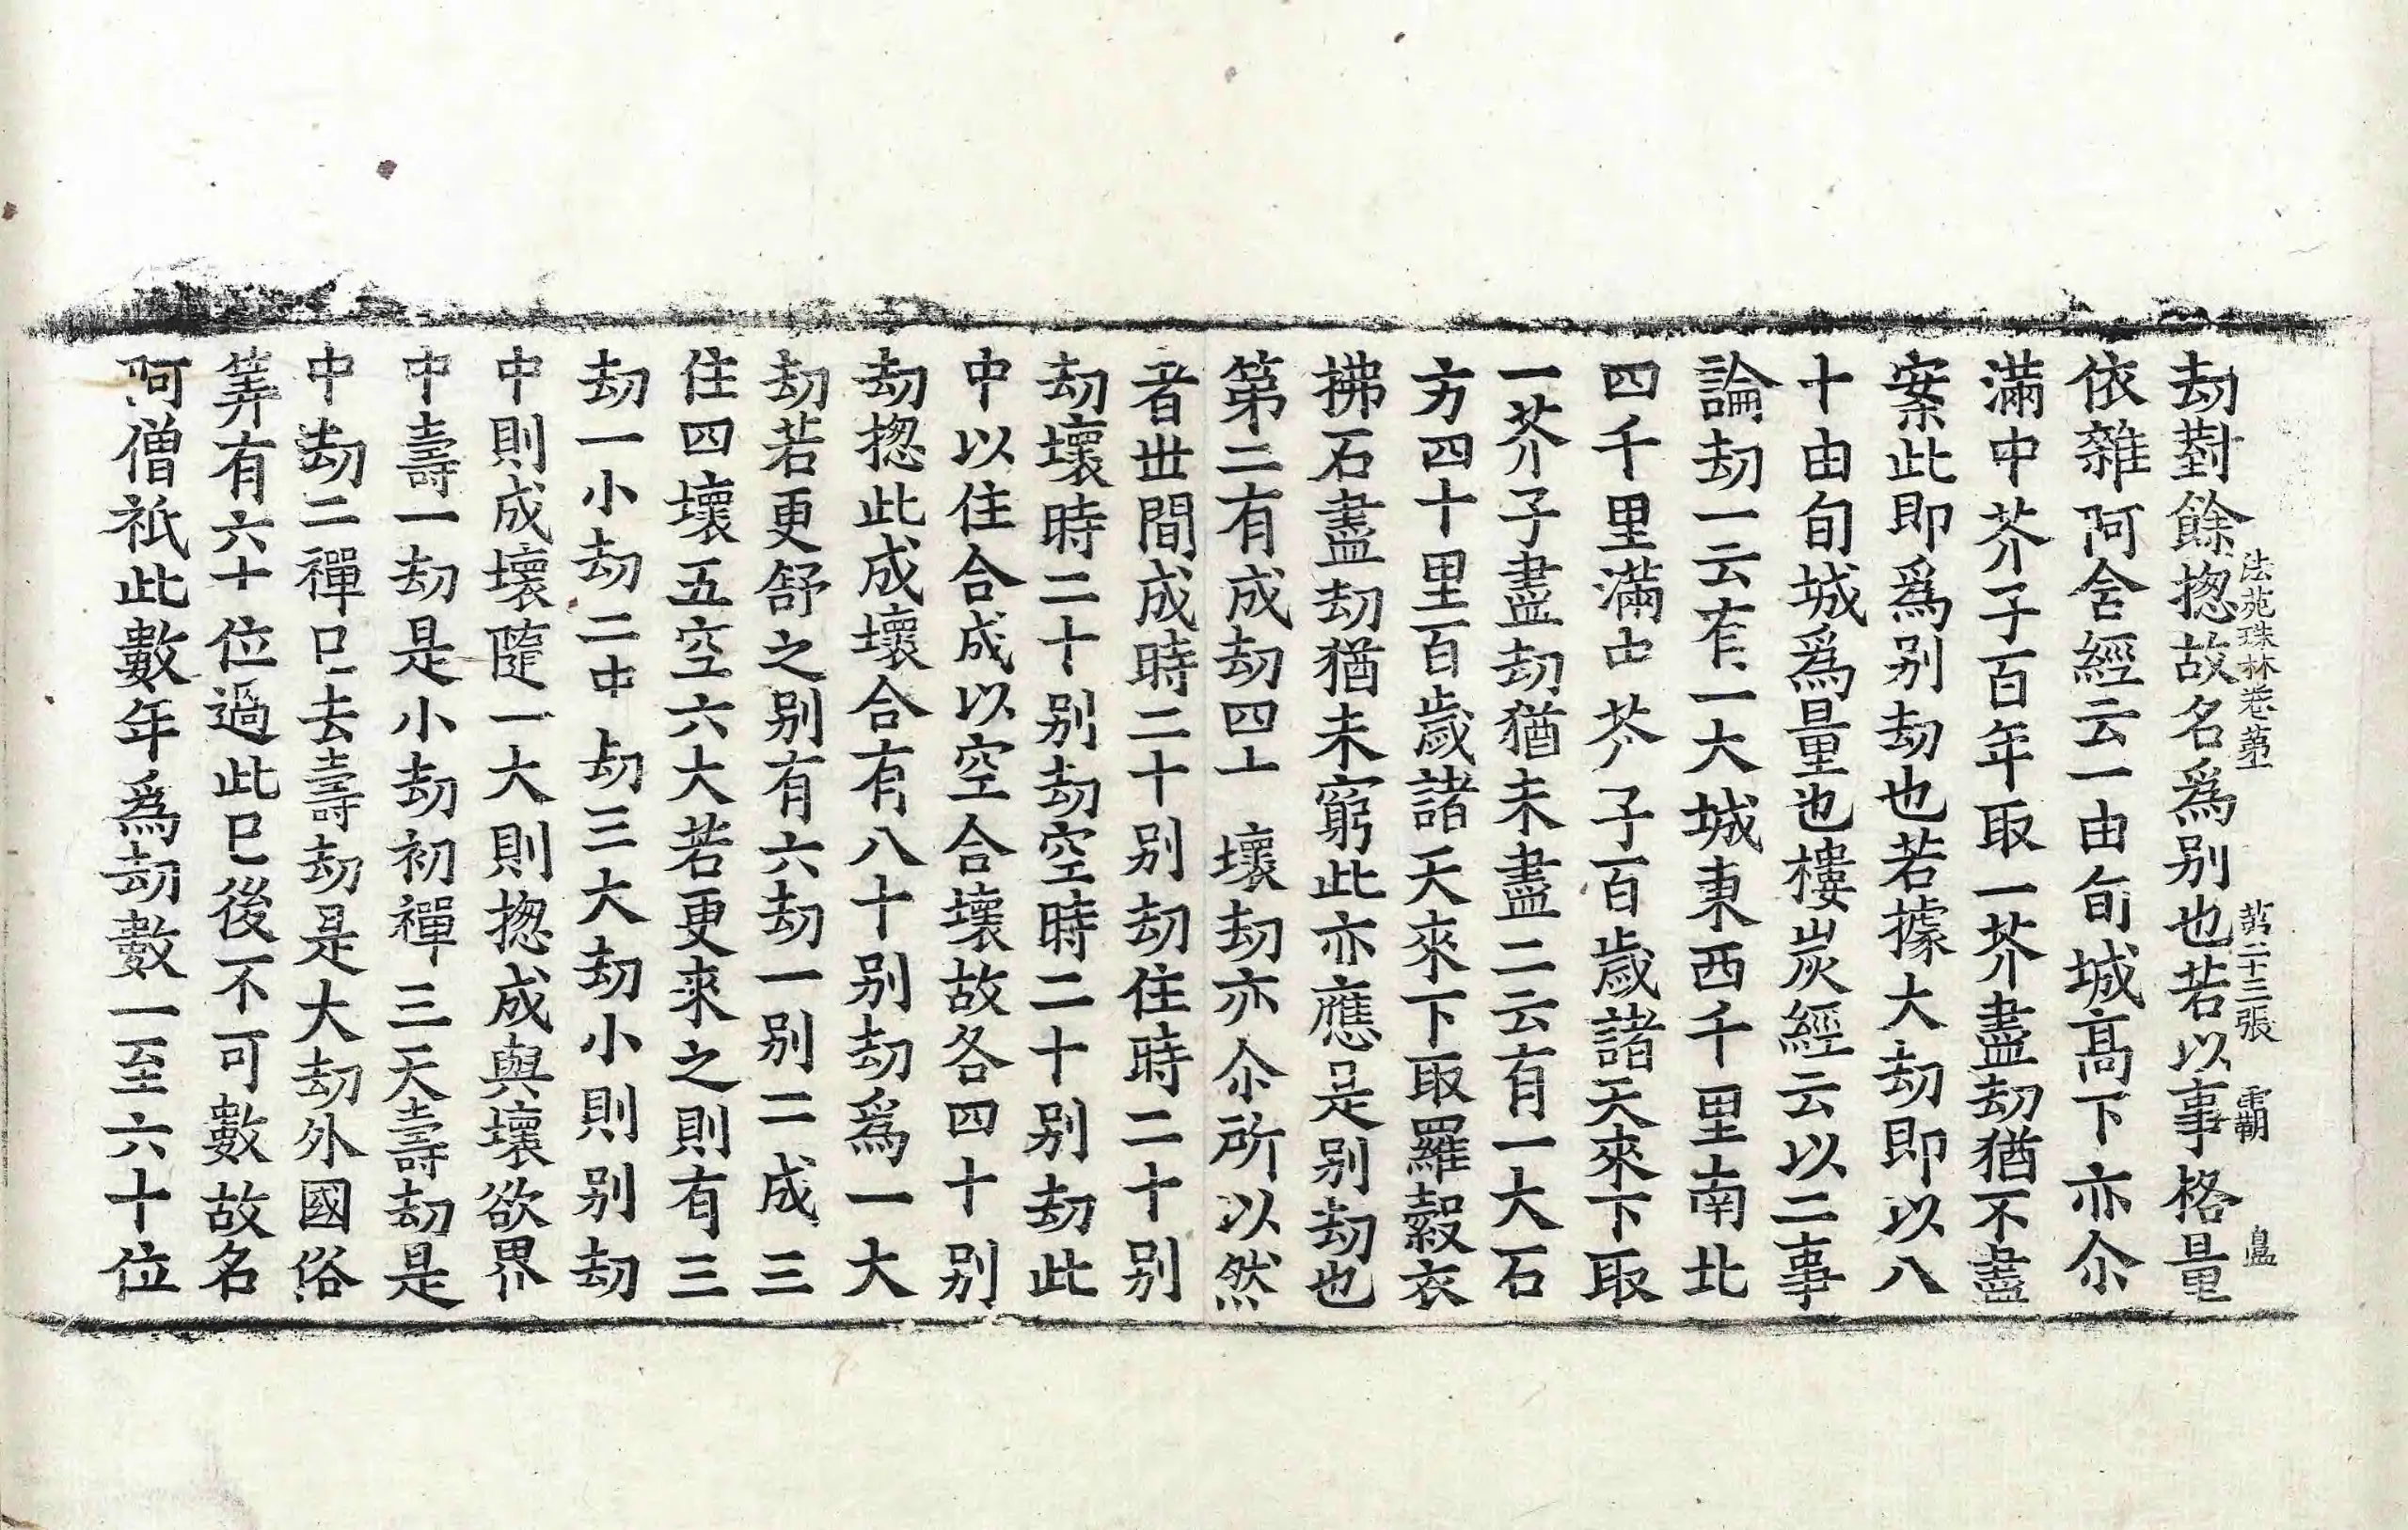 劫對餘揔故名爲別也若以事格量
法苑珠林卷第一 第二十三張
依雜阿含經云一由旬城高下亦尒
滿中芥子百年取一芥盡劫猶不盡
案此即爲別劫也若據大劫即以八
十由旬城爲量也樓炭經云以二事
論劫一云有一大城東西千里南北
四千里滿中芥子百歲諸天來下取
一芥子盡劫猶未盡二云有一大石
方四十里百歲諸天來下取羅縠衣
拂石盡劫猶未窮此亦應是別劫也
第二有成劫四十 壞劫亦尒所以然
者世間成時二十別劫住時二十別
劫壞時二十別劫空時二十別劫此
中以住合成以空合壞故各四十別
劫揔此成壞合有八十別劫爲一大
劫若更舒之別有六劫一別二成三
住四壞五空六大若更來之則有三
劫一小劫二中劫三大劫小則別劫
中則成壞隨一大則揔成與壞欲界
中壽一劫是小劫初禪三天壽劫是
中劫二禪已去壽劫是大劫外國俗
筭有六十位過此已後不可數故名
阿僧祇此數年爲劫數一至六十位